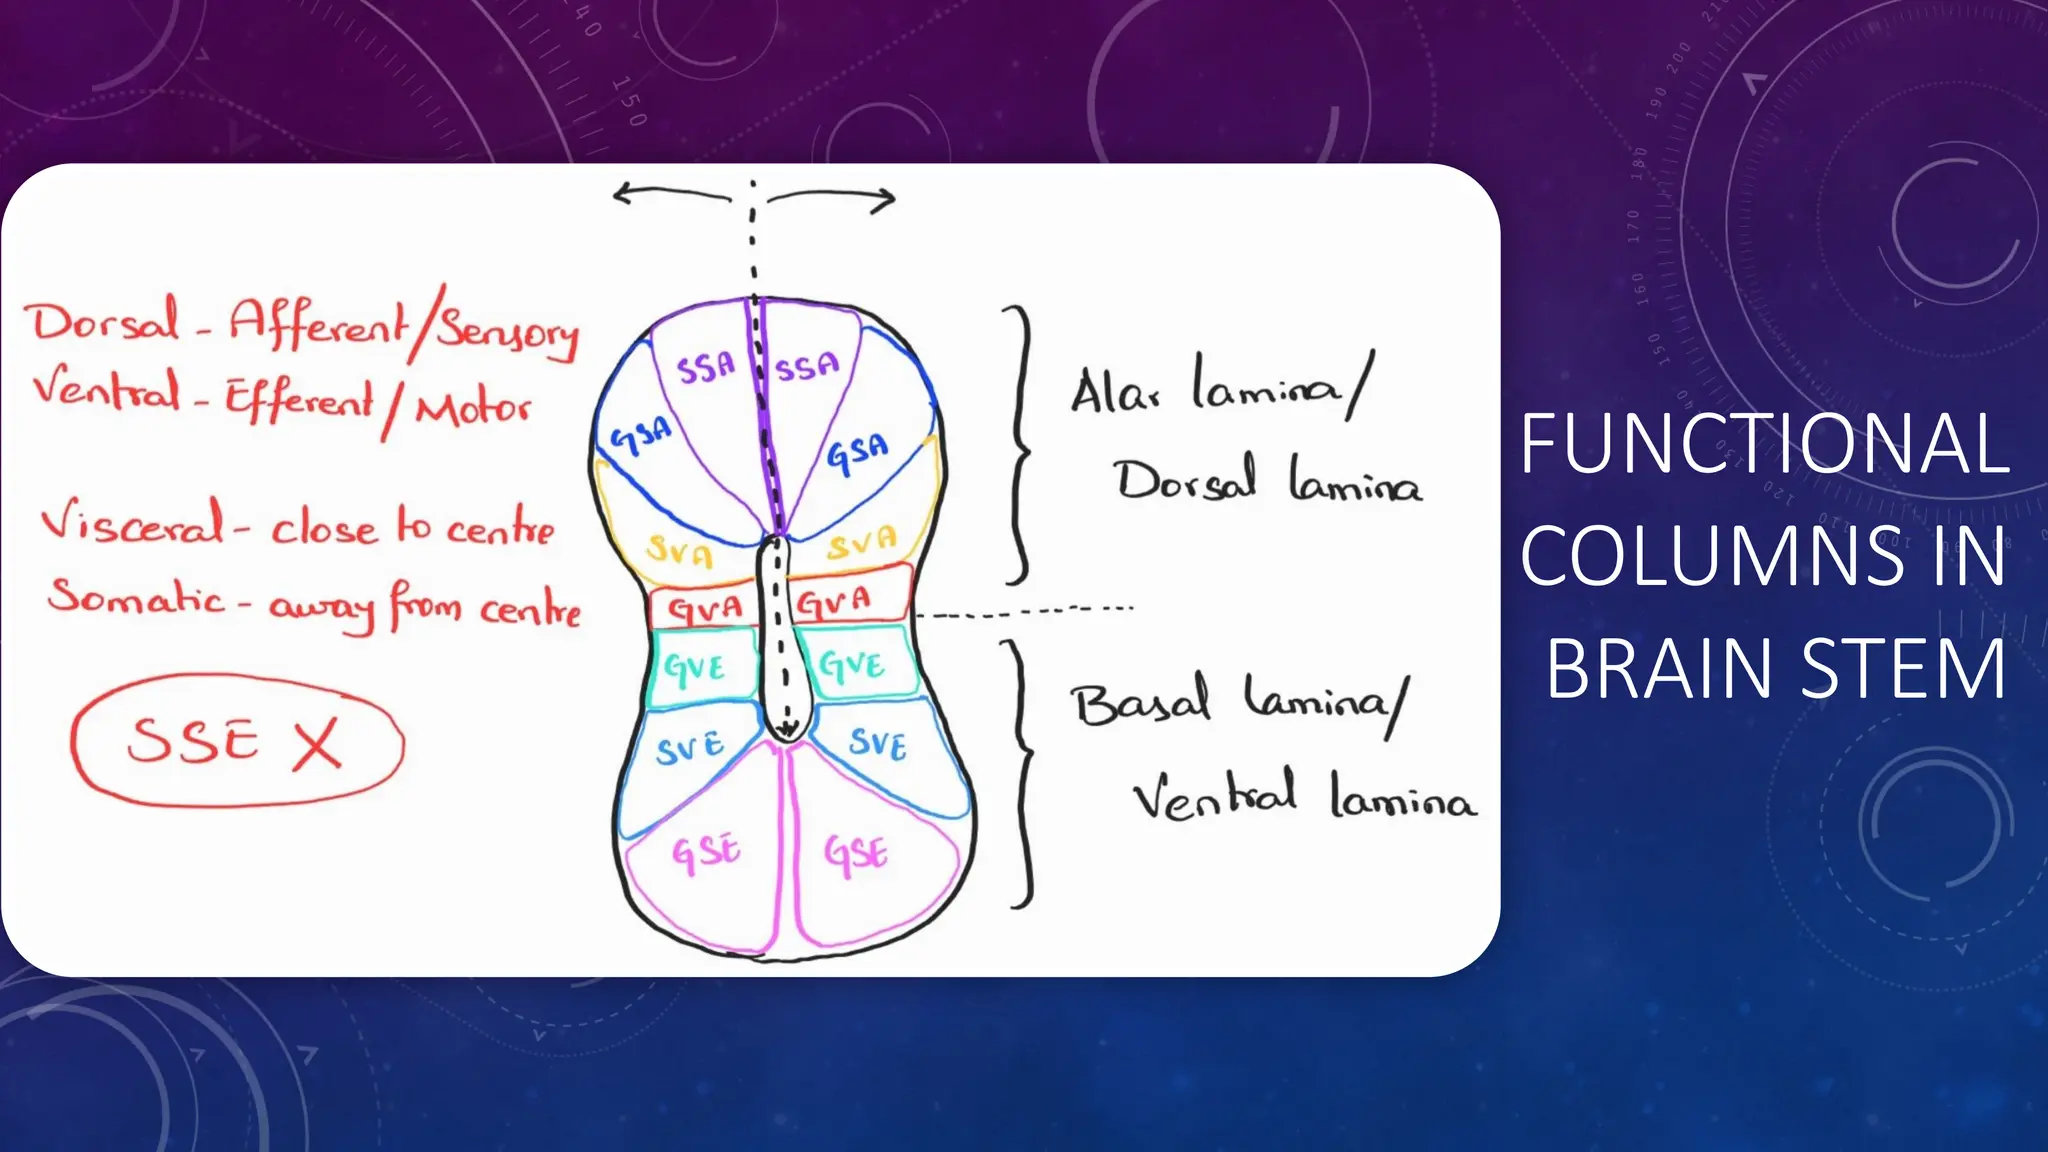 Dorsal - Afferent/Sensory
Ventral - Efferent/Motor
Visceral - close to centre
Somatic - away from centre
SSE X
SSA SSA
GSA GSA
SVA SVA
GVA GVA
GVE GVE
SVE SVE
GSE GSE
Alar lamina/
Dorsal lamina
Basal lamina/
Ventral lamina
FUNCTIONAL
COLUMNS IN
BRAIN STEM
140
150
210
200
190
180
170
160
150
140
130
120
110
100
90
80